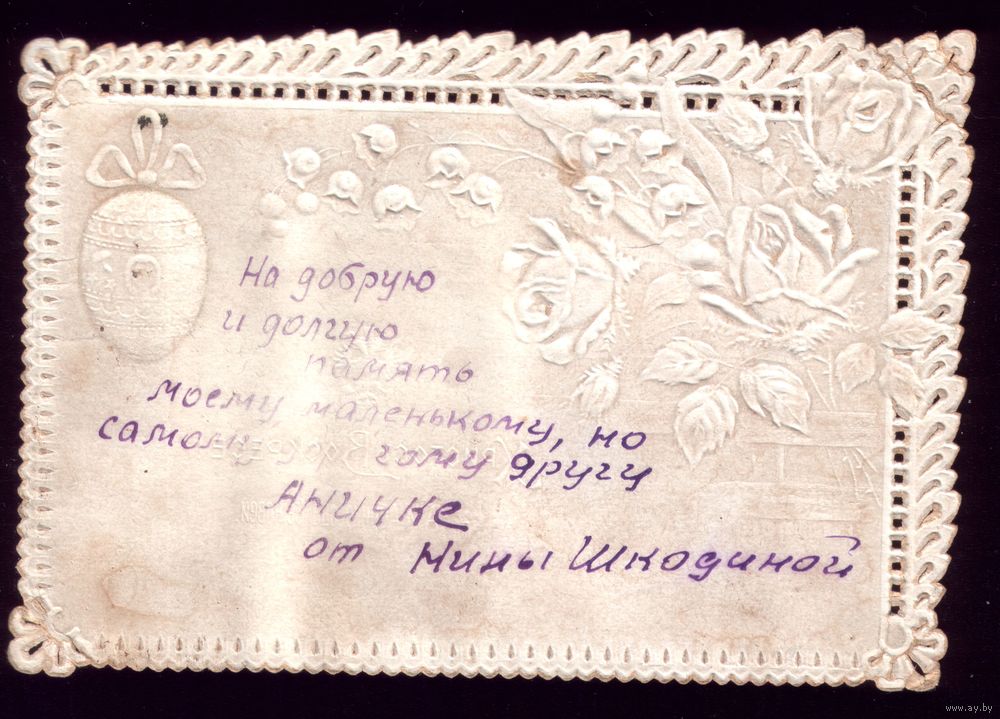 На добрую
и долгую
память
моему маленькому, но
самому другу
Аничке
от Нины Шкодиной
www.ay.by